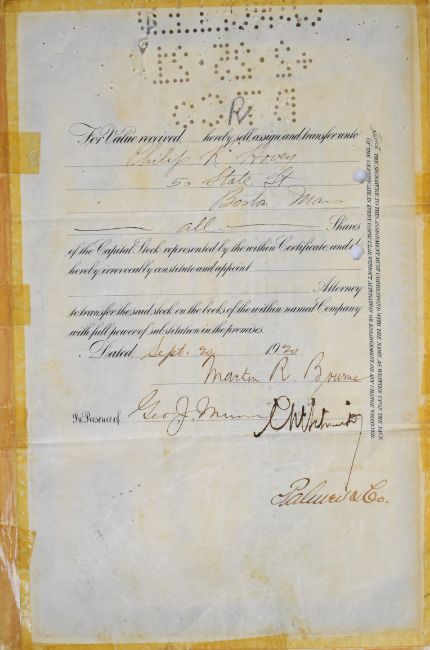 R
For Value received, hereby sell assign and transfer unto
Philip R. Hovey
50 State St
Boston Mass
all Shares
of the Capital Stock represented by the within Certificate, and do
hereby irrevocably constitute and appoint
Attorney
to transfer the said stock on the books of the within named Company
with full power of substitution in the premises.
Dated Sept. 1920
Martin R. Bourne
In Presence of Geo. J.
Palmer & Co.
NOTICE. THE SIGNATURE TO THIS ASSIGNMENT MUST CORRESPOND WITH THE NAME AS WRITTEN UPON THE FACE
OF THE CERTIFICATE IN EVERY PARTICULAR WITHOUT ALTERATION OR ENLARGEMENT OR ANY CHANGE WHATEVER.